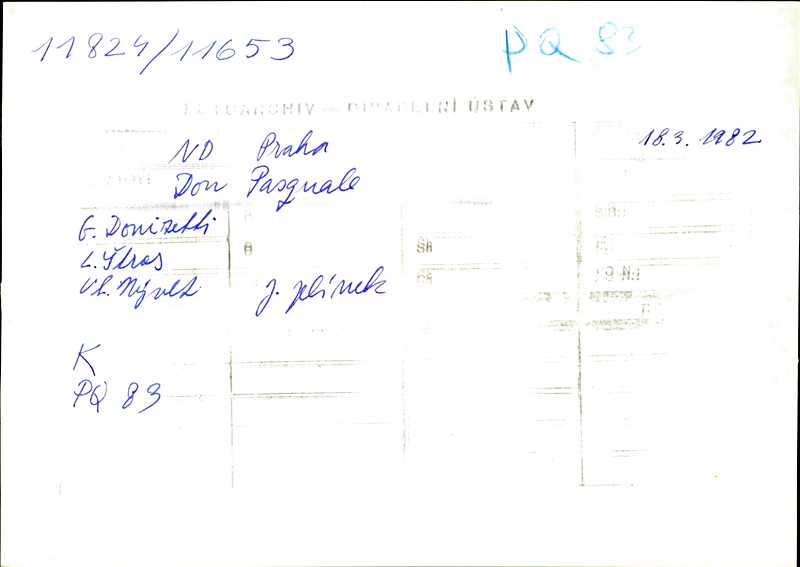 11824/11653
PQ 83
FOTOARCHIV — DIVADELNÍ ÚSTAV
ND Praha
18.3.1982
Don Pasquale
G. Donizetti
L. Štros
Vl. Nývlt J. Jelínek
K
PQ 83